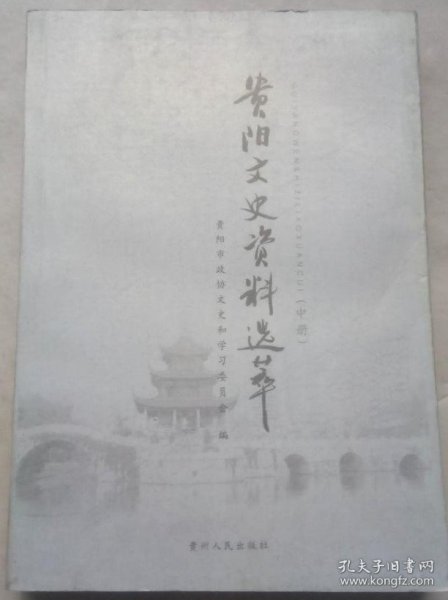 贵阳文史资料选萃
GUIYANGWENSHIZILIAOXUANCUI（中册）
贵阳市政协文史和学习委员会 编
贵州人民出版社
孔夫子旧书网
www.kongfz.com